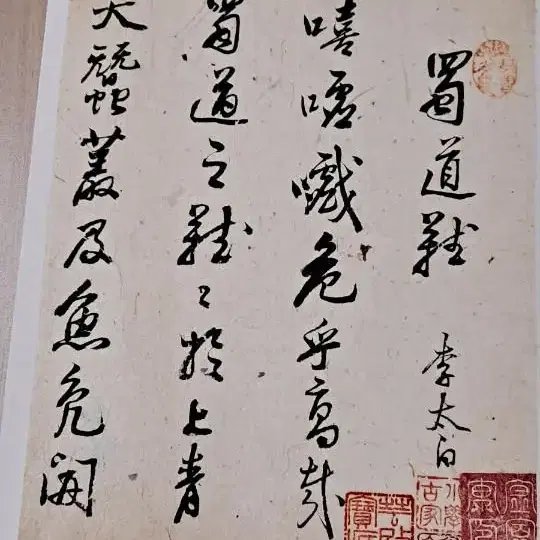 蜀道難 李太白
嘻嘘嚱危乎高哉
蜀道之難〻於上青
天蠶叢及魚鳧開